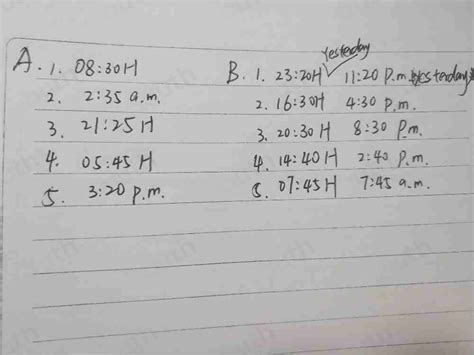 A. 1. 08:30H
2. 2:35 a.m.
3. 21:25 H
4. 05:45 H
5. 3:20 p.m.
Yesterday
B. 1. 23:20H 11:20 p.m. yesterday
2. 16:30H 4:30 p.m.
3. 20:30 H 8:30 p.m.
4. 14:40 H 2:40 p.m.
5. 07:45 H 7:45 a.m.